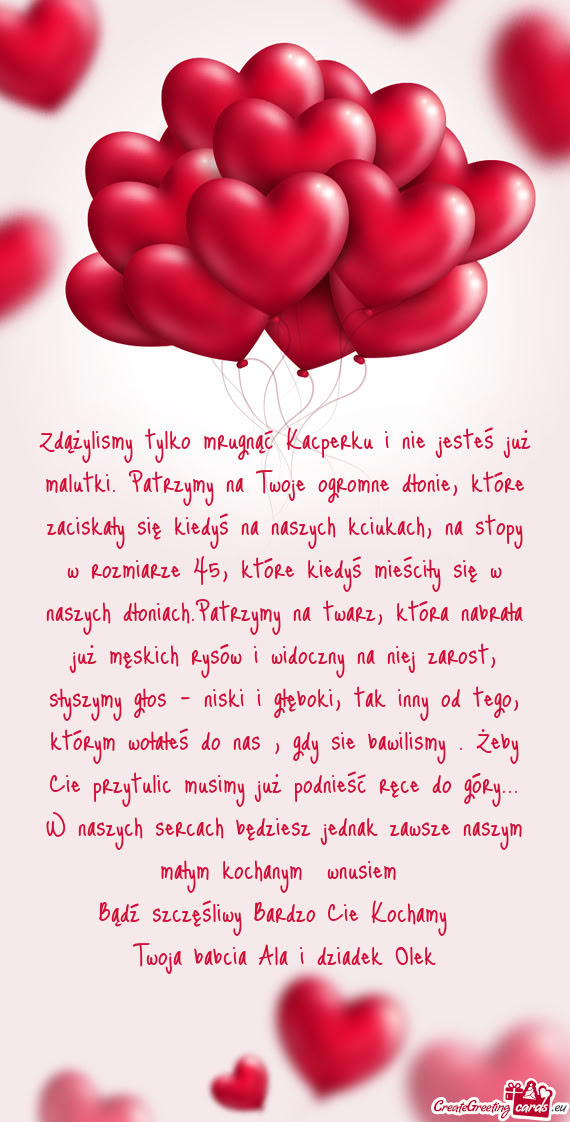 Zdążylismy tylko mrugnąć Kacperku i nie jesteś już
malutki. Patrzymy na Twoje ogromne dłonie, które
zaciskały się kiedyś na naszych kciukach, na stopy
w rozmiarze 45, które kiedyś mieściły się w
naszych dłoniach.Patrzymy na twarz, która nabrała
już męskich rysów i widoczny na niej zarost,
słyszymy głos - niski i głęboki, tak inny od tego,
którym wołałeś do nas , gdy sie bawilismy . Żeby
Cie przytulic musimy już podnieść ręce do góry...
W naszych sercach będziesz jednak zawsze naszym
małym kochanym wnusiem
Bądź szczęśliwy Bardzo Cie Kochamy
Twoja babcia Ala i dziadek Olek
CreateGreeting cards .eu